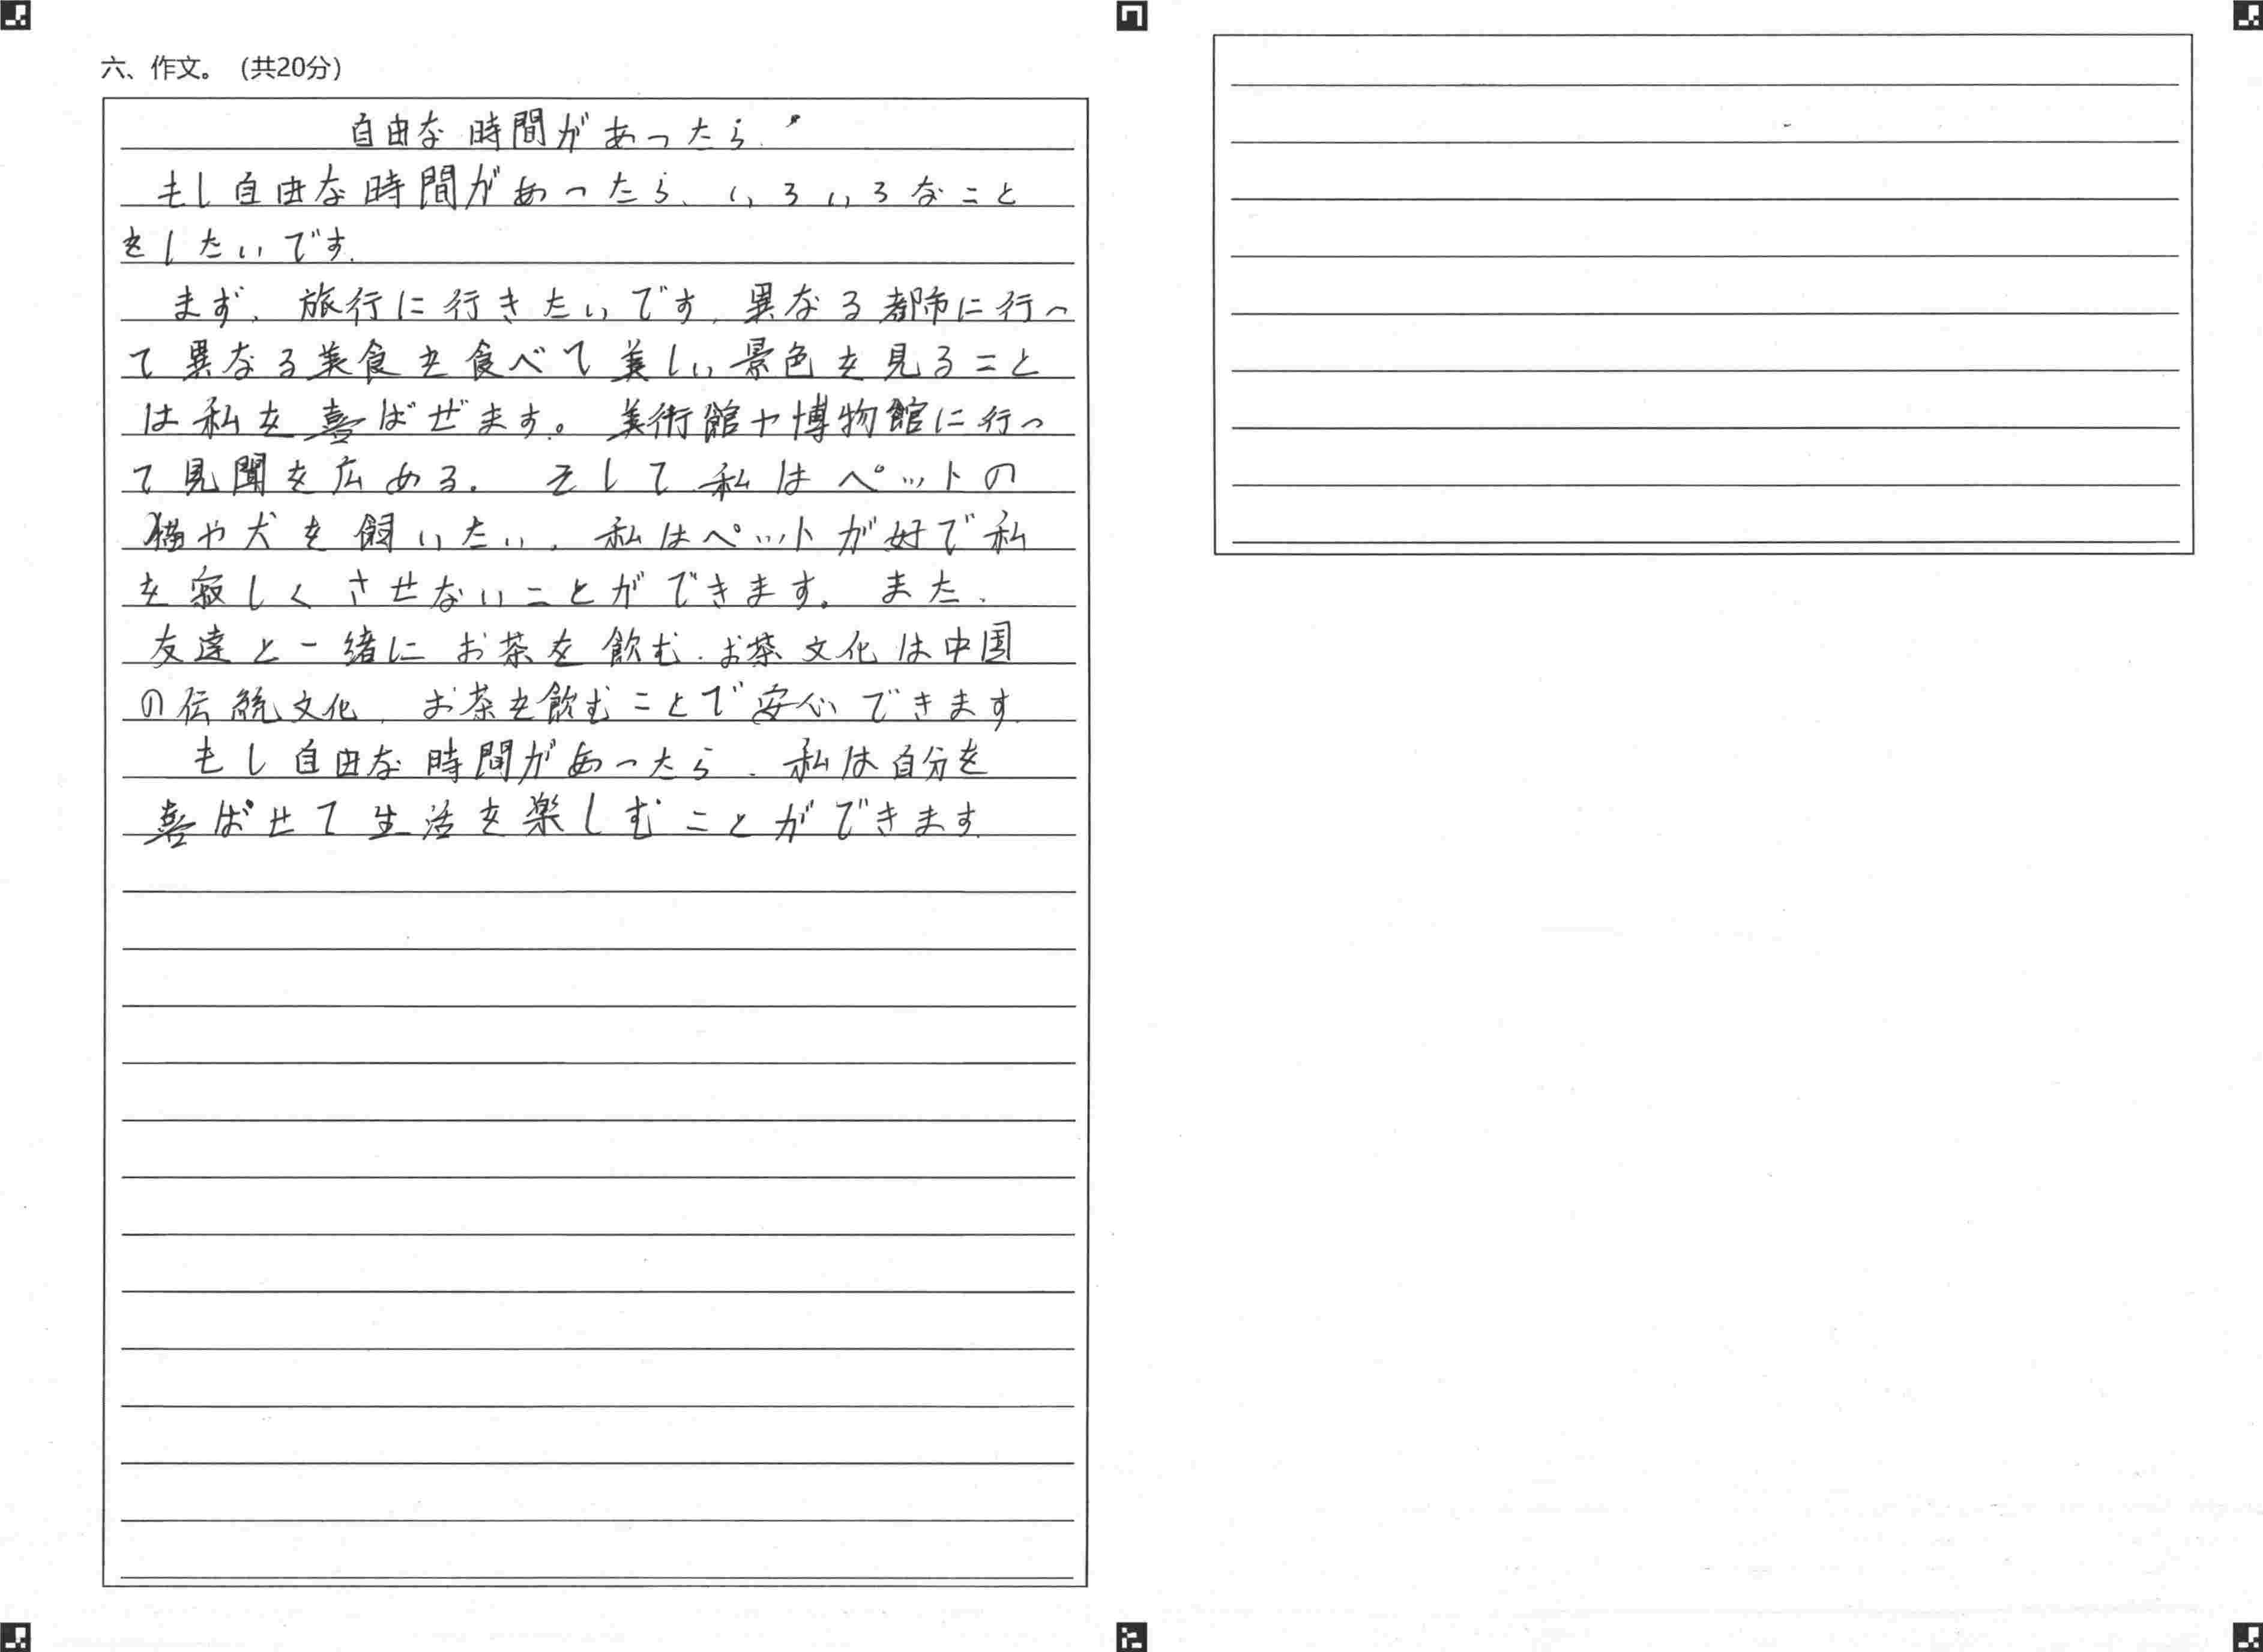 六、作文。（共20分）
自由な時間があったら
もし自由な時間があったら、いろいろなこと
をしたいです.
まず、旅行に行きたいです。異なる都市に行っ
て異なる美食を食べて美しい景色を見ること
は私を喜ばぜます。美術館や博物館に行っ
て見聞を広める. そして私はペットの
猫や犬を飼いたい。私はペットが好で私
を寂しくさせないことができます。また、
友達と一緒にお茶を飲む.お茶文化は中国
の伝統文化、お茶を飲むことで安心できます.
もし自由な時間があったら、私は自分を
喜ばせて生活を楽しむことができます.